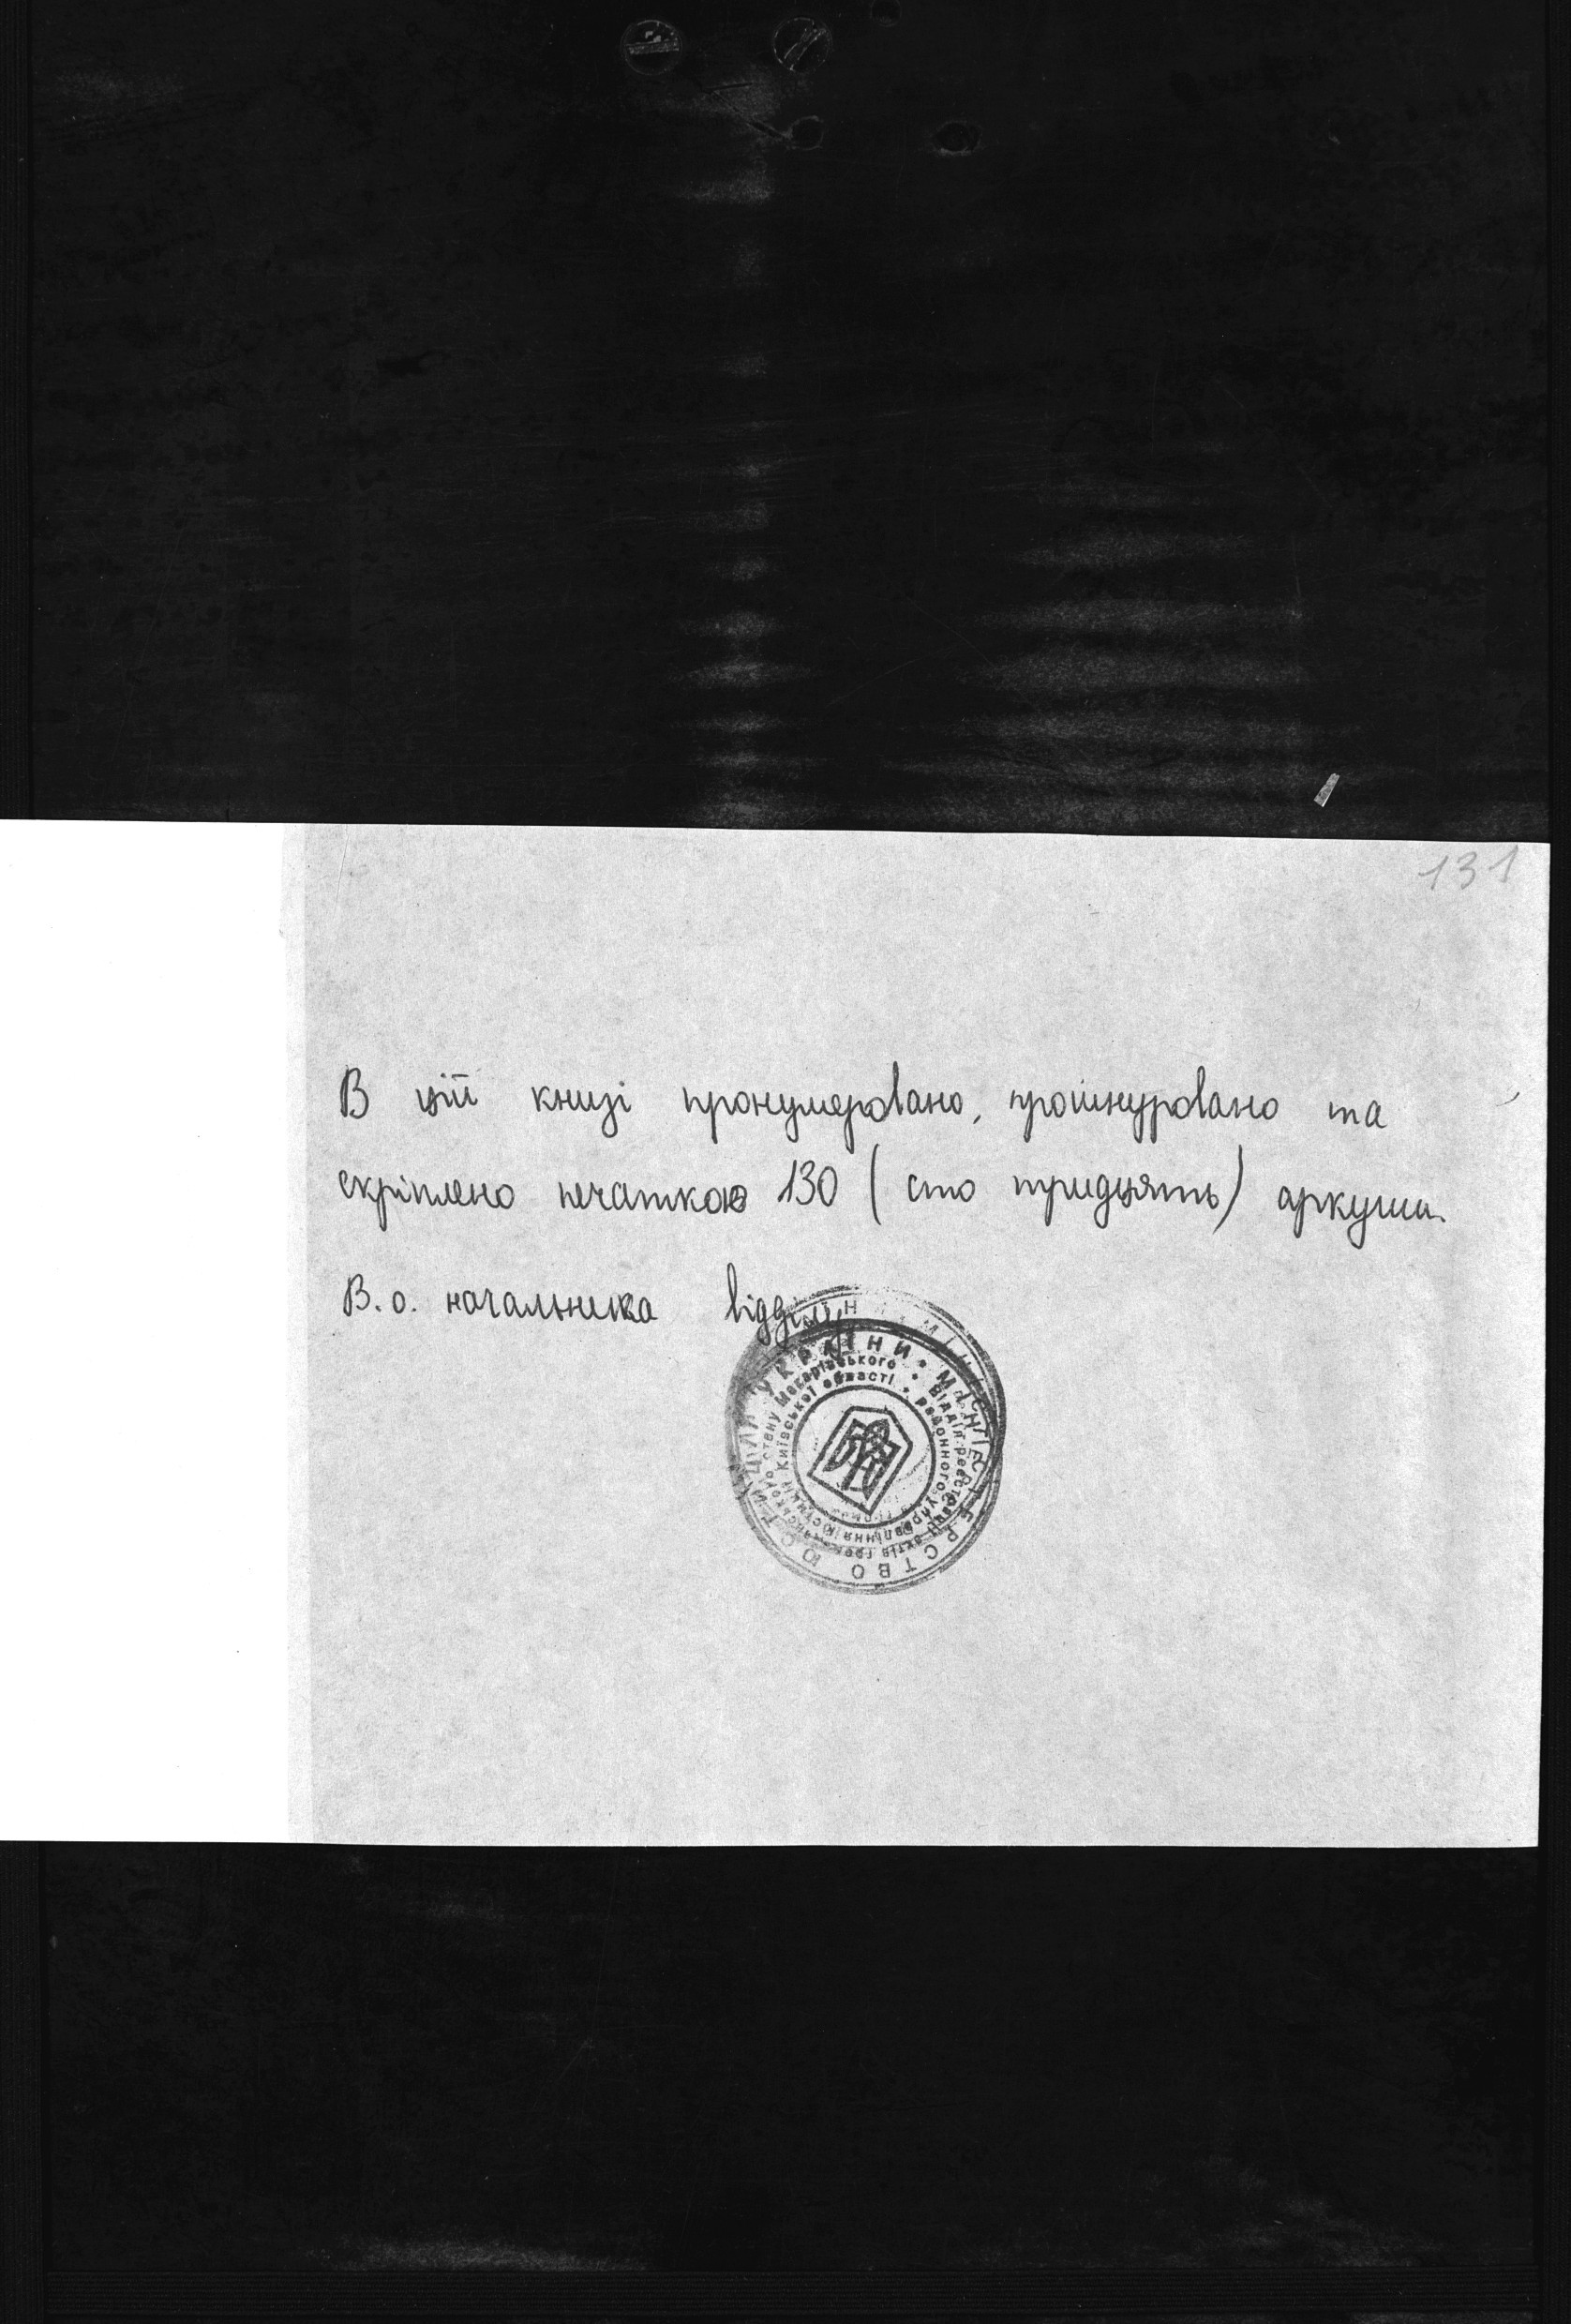 131
В цій книзі пронумеровано, прошнуровано та
скріплено печаткою 130 (сто тридцять) аркуши.
В.о. начальника відділу
МІНІСТЕРСТВО ЮСТИЦІЇ УКРАЇНИ
Відділ реєстрації актів громадянського стану Макарівського
районного управління юстиції Київської області